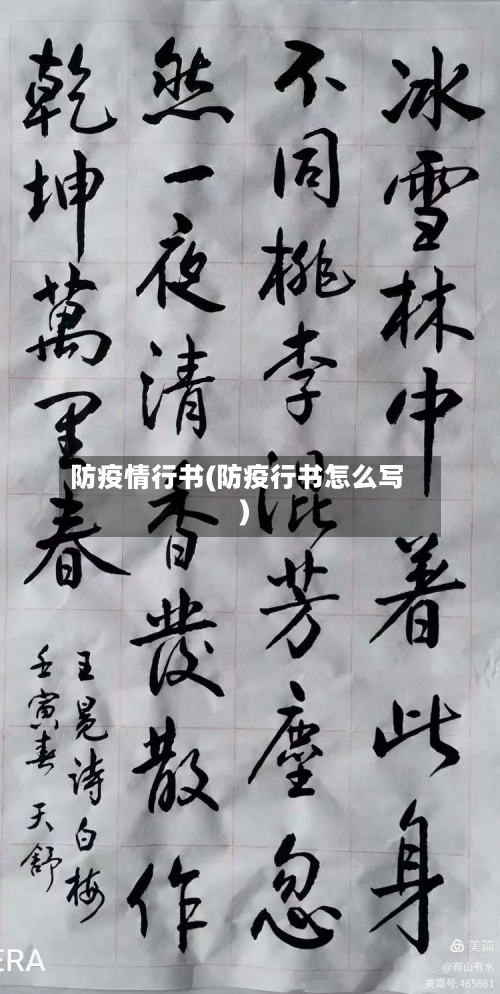 冰雪林中着此身
不同桃李混芳塵忽
然一夜清香發散作
乾坤萬里春
王冕诗白梅
壬寅春 天舒
防疫情行书(防疫行书怎么写
)
ERA
美篇
@有山有水
美篇号:465861